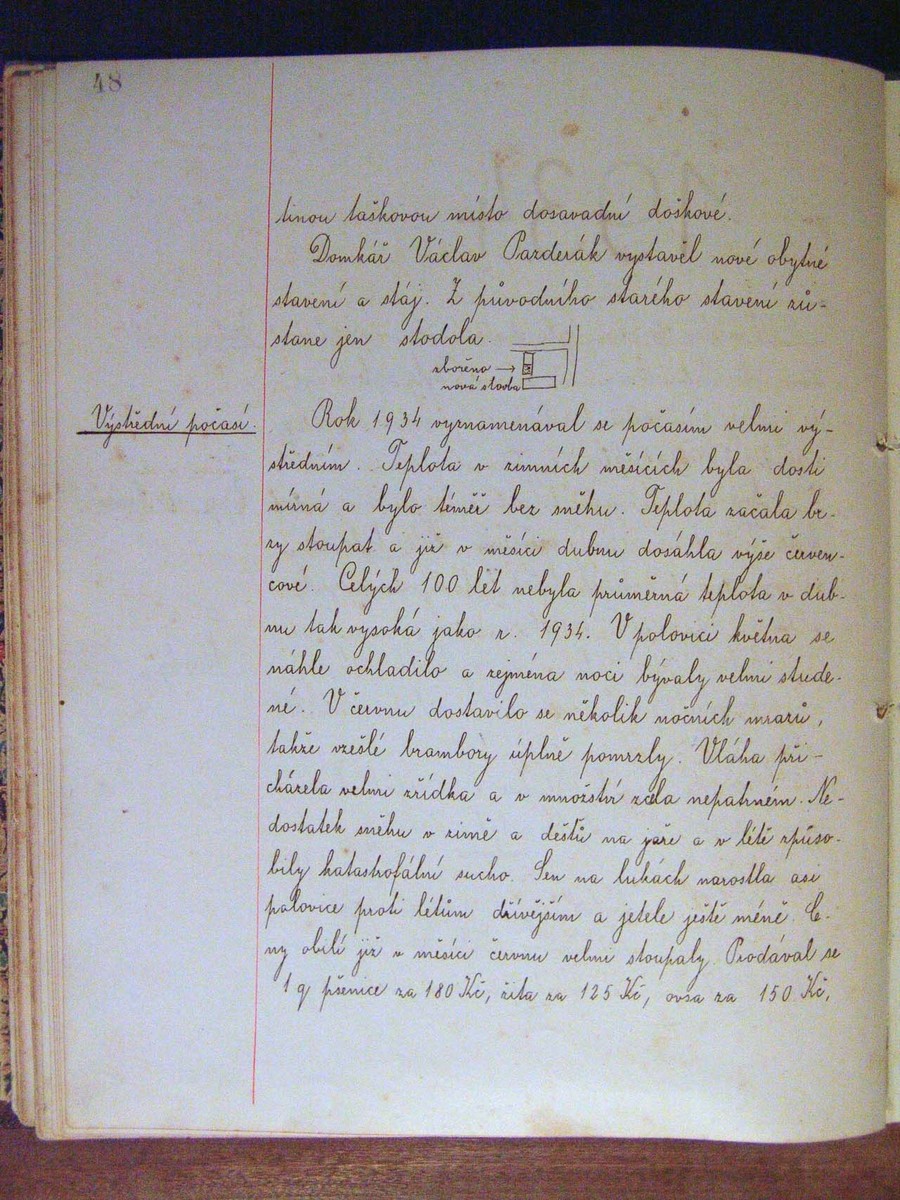 48
tinou taškovou místo dosavadní doškové.
Domkář Václav Pazderák vystavěl nové obytné
stavení a stáj. Z původního starého stavení zů-
stane jen stodola.
zbořeno →
nová stavba
Výstřední počasí.
Rok 1934 vyznamenával se počasím velmi vý-
středním. Teplota v zimních měsících byla dosti
mírná a bylo téměř bez sněhu. Teplota začala br-
zy stoupat a již v měsíci dubnu dosáhla výše červen-
cové. Celých 100 let nebyla průměrná teplota v dub-
nu tak vysoká jako r. 1934. V polovici května se
náhle ochladilo a zejména noci bývaly velmi stude-
né. V červnu dostavilo se několik nočních mrazů,
takže vzešlé brambory úplně pomrzly. Vláha při-
cházela velmi zřídka a v množství zcela nepatrném. Ne-
dostatek sněhu v zimě a dešťů na jaře a v létě způso-
bily katastrofální sucho. Sen na lukách narostla asi
polovice proti létům dřívějším a jetele ještě méně. Ce-
ny obilí již v měsíci červnu velmi stoupaly. Prodával se
1 q pšenice za 180 Kč, žita za 125 Kč, ovsa za 150 Kč,